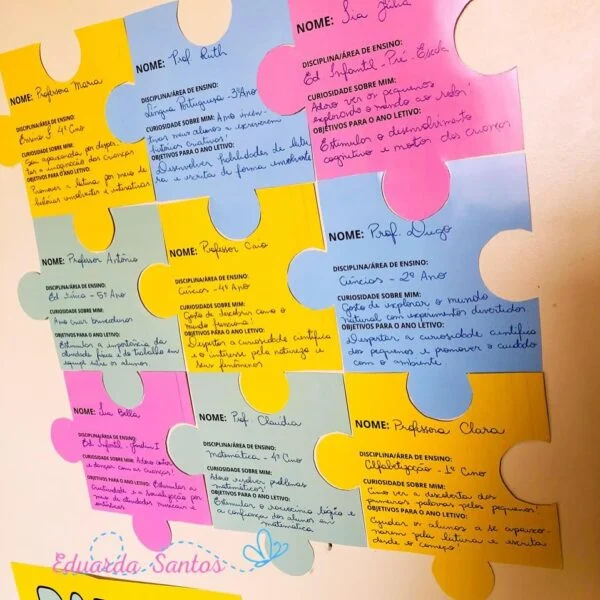 NOME: Professora Maria
DISCIPLINA/ÁREA DE ENSINO:
Ensino F 4º Ano
CURIOSIDADE SOBRE MIM:
Sou apaixonada por desper
tar a imaginação das crianças
OBJETIVOS PARA O ANO LETIVO:
Promover a leitura por meio de
histórias envolventes e interativas
NOME: Prof. Ruth
DISCIPLINA/ÁREA DE ENSINO:
Língua Portuguesa - 3º Ano
CURIOSIDADE SOBRE MIM: Amo incen-
tivar meus alunos a escreverem
histórias criativas!
OBJETIVOS PARA O ANO LETIVO:
Desenvolver habilidades de leitu
ra e escrita de forma envolvente
NOME: Tia Júlia
DISCIPLINA/ÁREA DE ENSINO:
Ed. Infantil - Pré-Escola
CURIOSIDADE SOBRE MIM:
Adoro ver os pequenos
explorando o mundo ao redor!
OBJETIVOS PARA O ANO LETIVO:
Estimular o desenvolvimento
cognitivo e motor das crianças
NOME: Professor Antônio
DISCIPLINA/ÁREA DE ENSINO:
Ed. Física - 5º Ano
CURIOSIDADE SOBRE MIM:
Amo criar brincadeiras
OBJETIVOS PARA O ANO LETIVO:
Estimular a importância da
atividade física e do trabalho em
equipe entre os alunos
NOME: Professor Caio
DISCIPLINA/ÁREA DE ENSINO:
Ciências - 4º Ano
CURIOSIDADE SOBRE MIM:
Gosto de descobrir como o
mundo funciona!
OBJETIVOS PARA O ANO LETIVO:
Despertar a curiosidade científica
e o interesse pela natureza e
seus fenômenos
NOME: Prof. Diego
DISCIPLINA/ÁREA DE ENSINO:
Ciências - 2º Ano
CURIOSIDADE SOBRE MIM:
Gosto de explorar o mundo
natural com experimentos divertidos
OBJETIVOS PARA O ANO LETIVO:
Despertar a curiosidade científica
dos pequenos e promover o cuidado
com o ambiente
NOME: Tia Bella
DISCIPLINA/ÁREA DE ENSINO:
Ed. Infantil - Jardim I
CURIOSIDADE SOBRE MIM: Adoro cantar
e dançar com as crianças!
OBJETIVOS PARA O ANO LETIVO: Estimular a
criatividade e a socialização por
meio de atividades musicais e
artísticas
NOME: Prof. Claudia
DISCIPLINA/ÁREA DE ENSINO:
Matemática - 4º Ano
CURIOSIDADE SOBRE MIM:
Adoro resolver problemas
matemáticos!
OBJETIVOS PARA O ANO LETIVO:
Estimular o raciocínio lógico e
a confiança dos alunos em
matemática
NOME: Professora Clara
DISCIPLINA/ÁREA DE ENSINO:
Alfabetização - 1º Ano
CURIOSIDADE SOBRE MIM:
Amo ver a descoberta das
primeiras palavras pelos pequenos!
OBJETIVOS PARA O ANO LETIVO:
Ajudar os alunos a se apaixo-
narem pela leitura e escrita
desde o começo!
Eduarda Santos